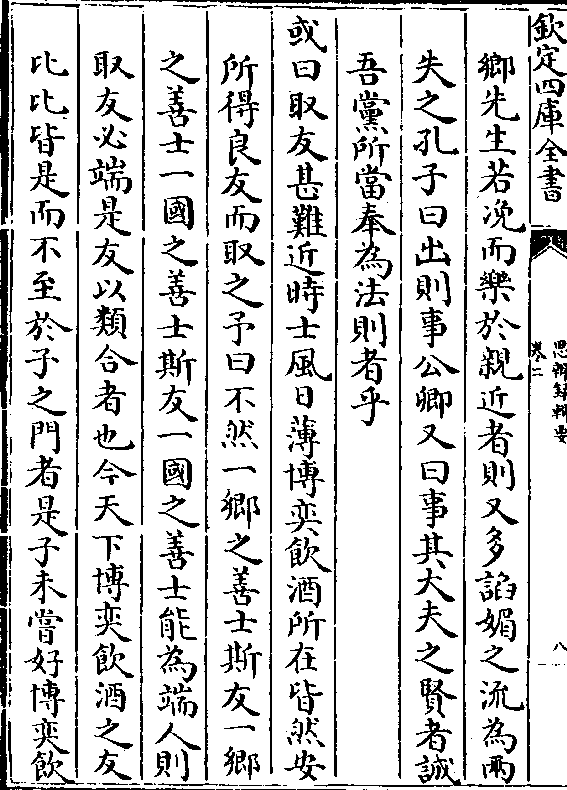 欽定四庫全書
思辨錄輯要
卷二
八
鄉先生若浼而樂於親近者則又多諂媚之流為兩
失之孔子曰出則事公卿又曰事其大夫之賢者誠
吾黨所當奉為法則者乎
或曰取友甚難近時士風日薄博奕飲酒所在皆然安
所得良友而取之予曰不然一鄉之善士斯友一鄉
之善士一國之善士斯友一國之善士能為端人則
取友必端是友以類合者也今天下博奕飲酒之友
比比皆是而不至於子之門者是子未嘗好博奕飲